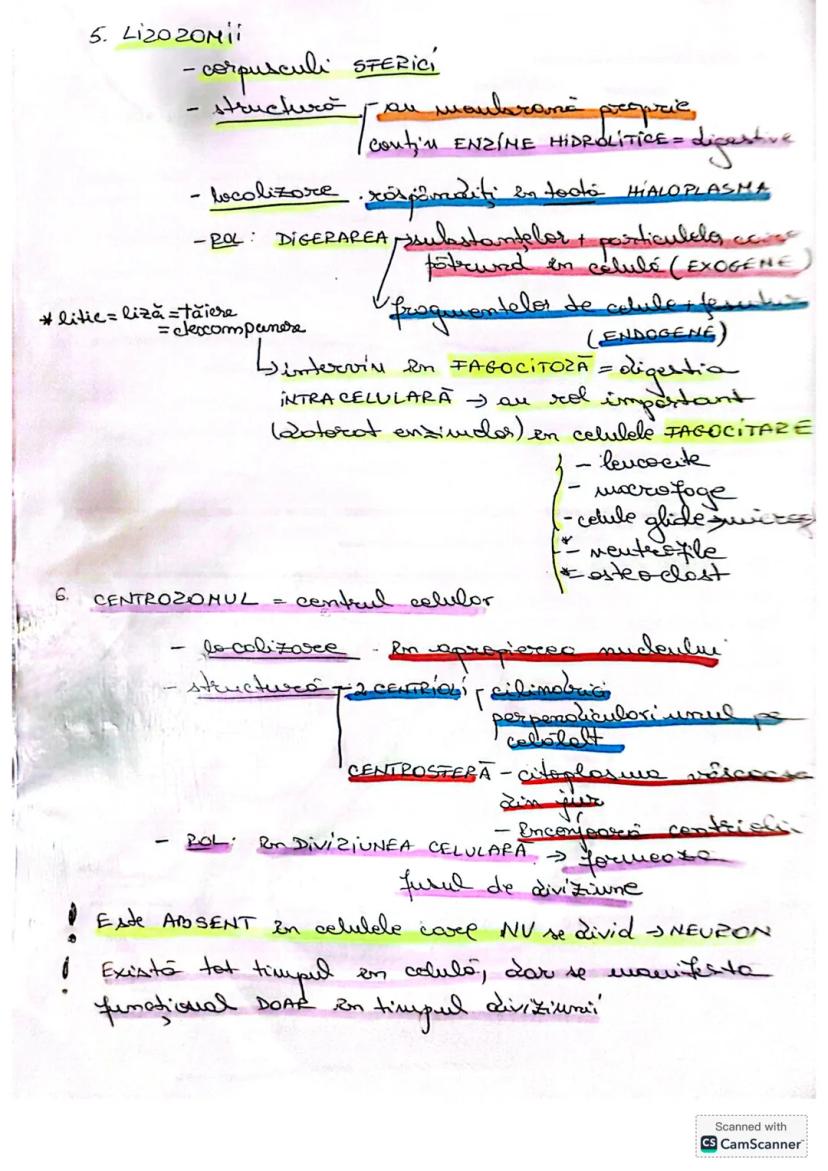 5. LIZOZOMII
- corpusculi SFERICI
- structură - au membrană proprie
conțin ENZIME HIDROLITICE = digestive
- localizare . răspândiți în toată HIALOPLASMA
- ROL : DIGERAREA → substanțelor + particulelor care
pătrund în celulă (EXOGENE)
fragmentelor de celule + țesuturi
* litic = liză = tăiere
= descompunere
(ENDOGENE)
↳ intervin în FAGOCITOZĂ = digestia
INTRACELULARĂ → au rol important
(datorat enzimelor) în celulele FAGOCITARE
- leucocite
- macrofage
- celule gliale →
* - neutrofile
* - osteoclast
6. CENTROZOMUL = centrul celular
- localizare - în apropierea nucleului
- structură - 2 CENTRIOLI cilindrici
perpendiculari unul pe
celălalt
CENTROSFERĂ - citoplasma vâscoasă
din jur
- înconjoară centriolii
- ROL : în DIVIZIUNEA CELULARĂ → formează
fusul de diviziune
! Este ABSENT în celulele care NU se divid → NEURON
! Există tot timpul în celulă, dar se manifestă
funcțional DOAR în timpul diviziunii
Scanned with
CS CamScanner